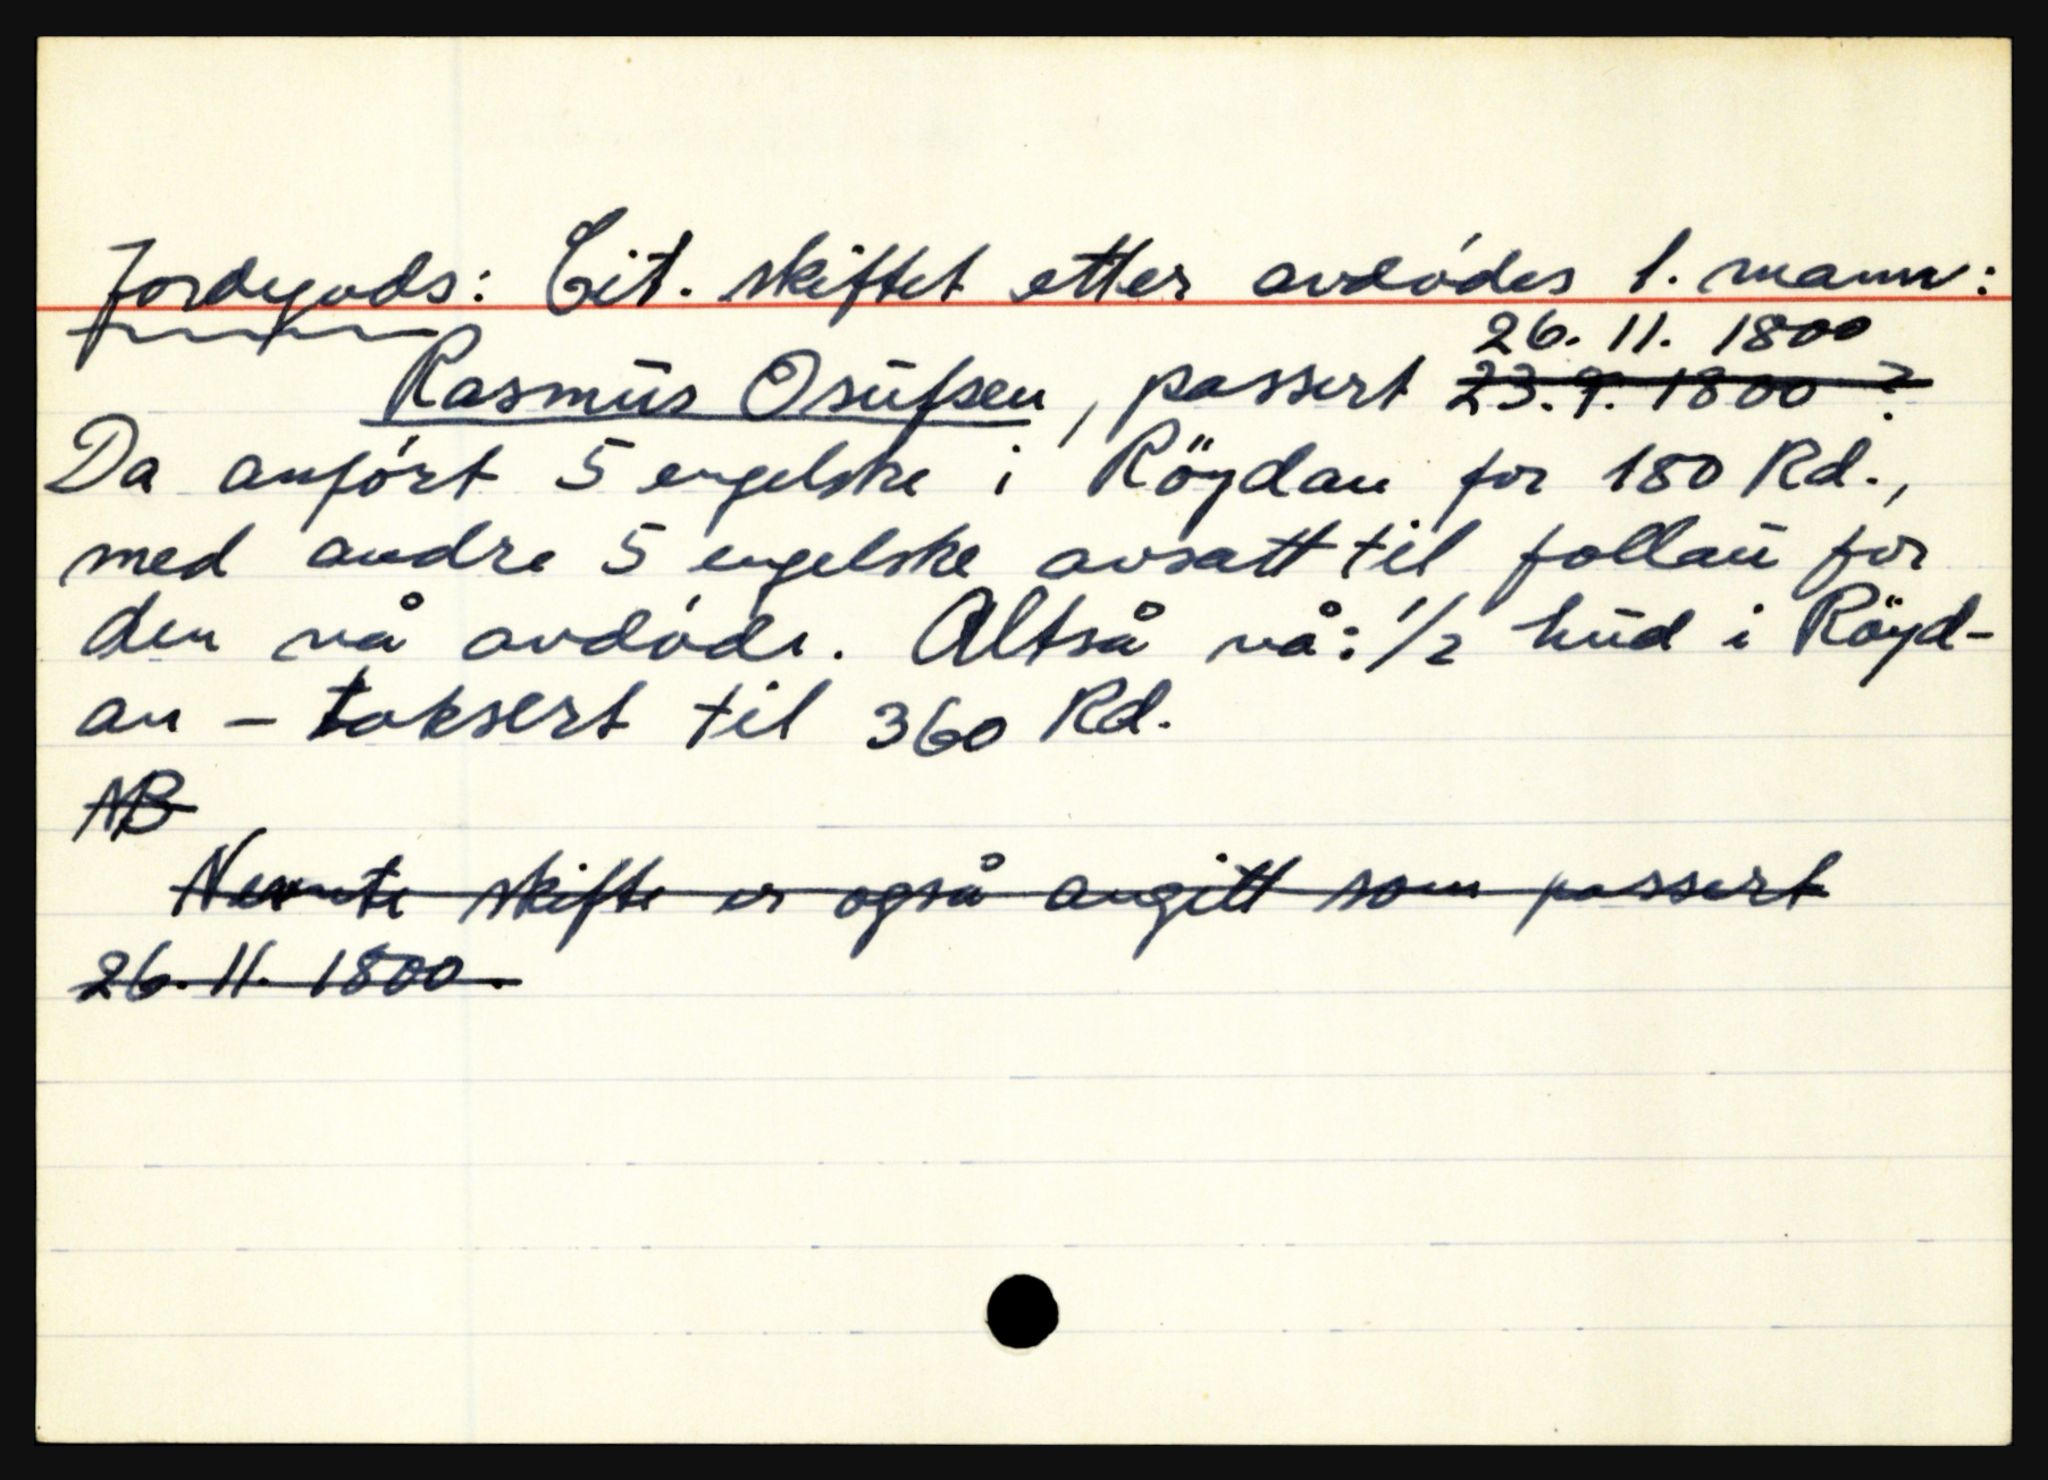 Jordegods: Cit. skiftet etter avdódes 1. mann:
26. 11. 1800
Rasmus Osufsen, passert 23.9.1800 ?
Da anfórt 5 engelske i Röydan for 180 Rd.,
med andre 5 engelske avsatt til follau for
den nå avdóde. Altså nå: 1/2 hud i Röyd-
an - taksert til 360 Rd.
NB
Nevnte skifte er også angitt som passert
26. 11. 1800.